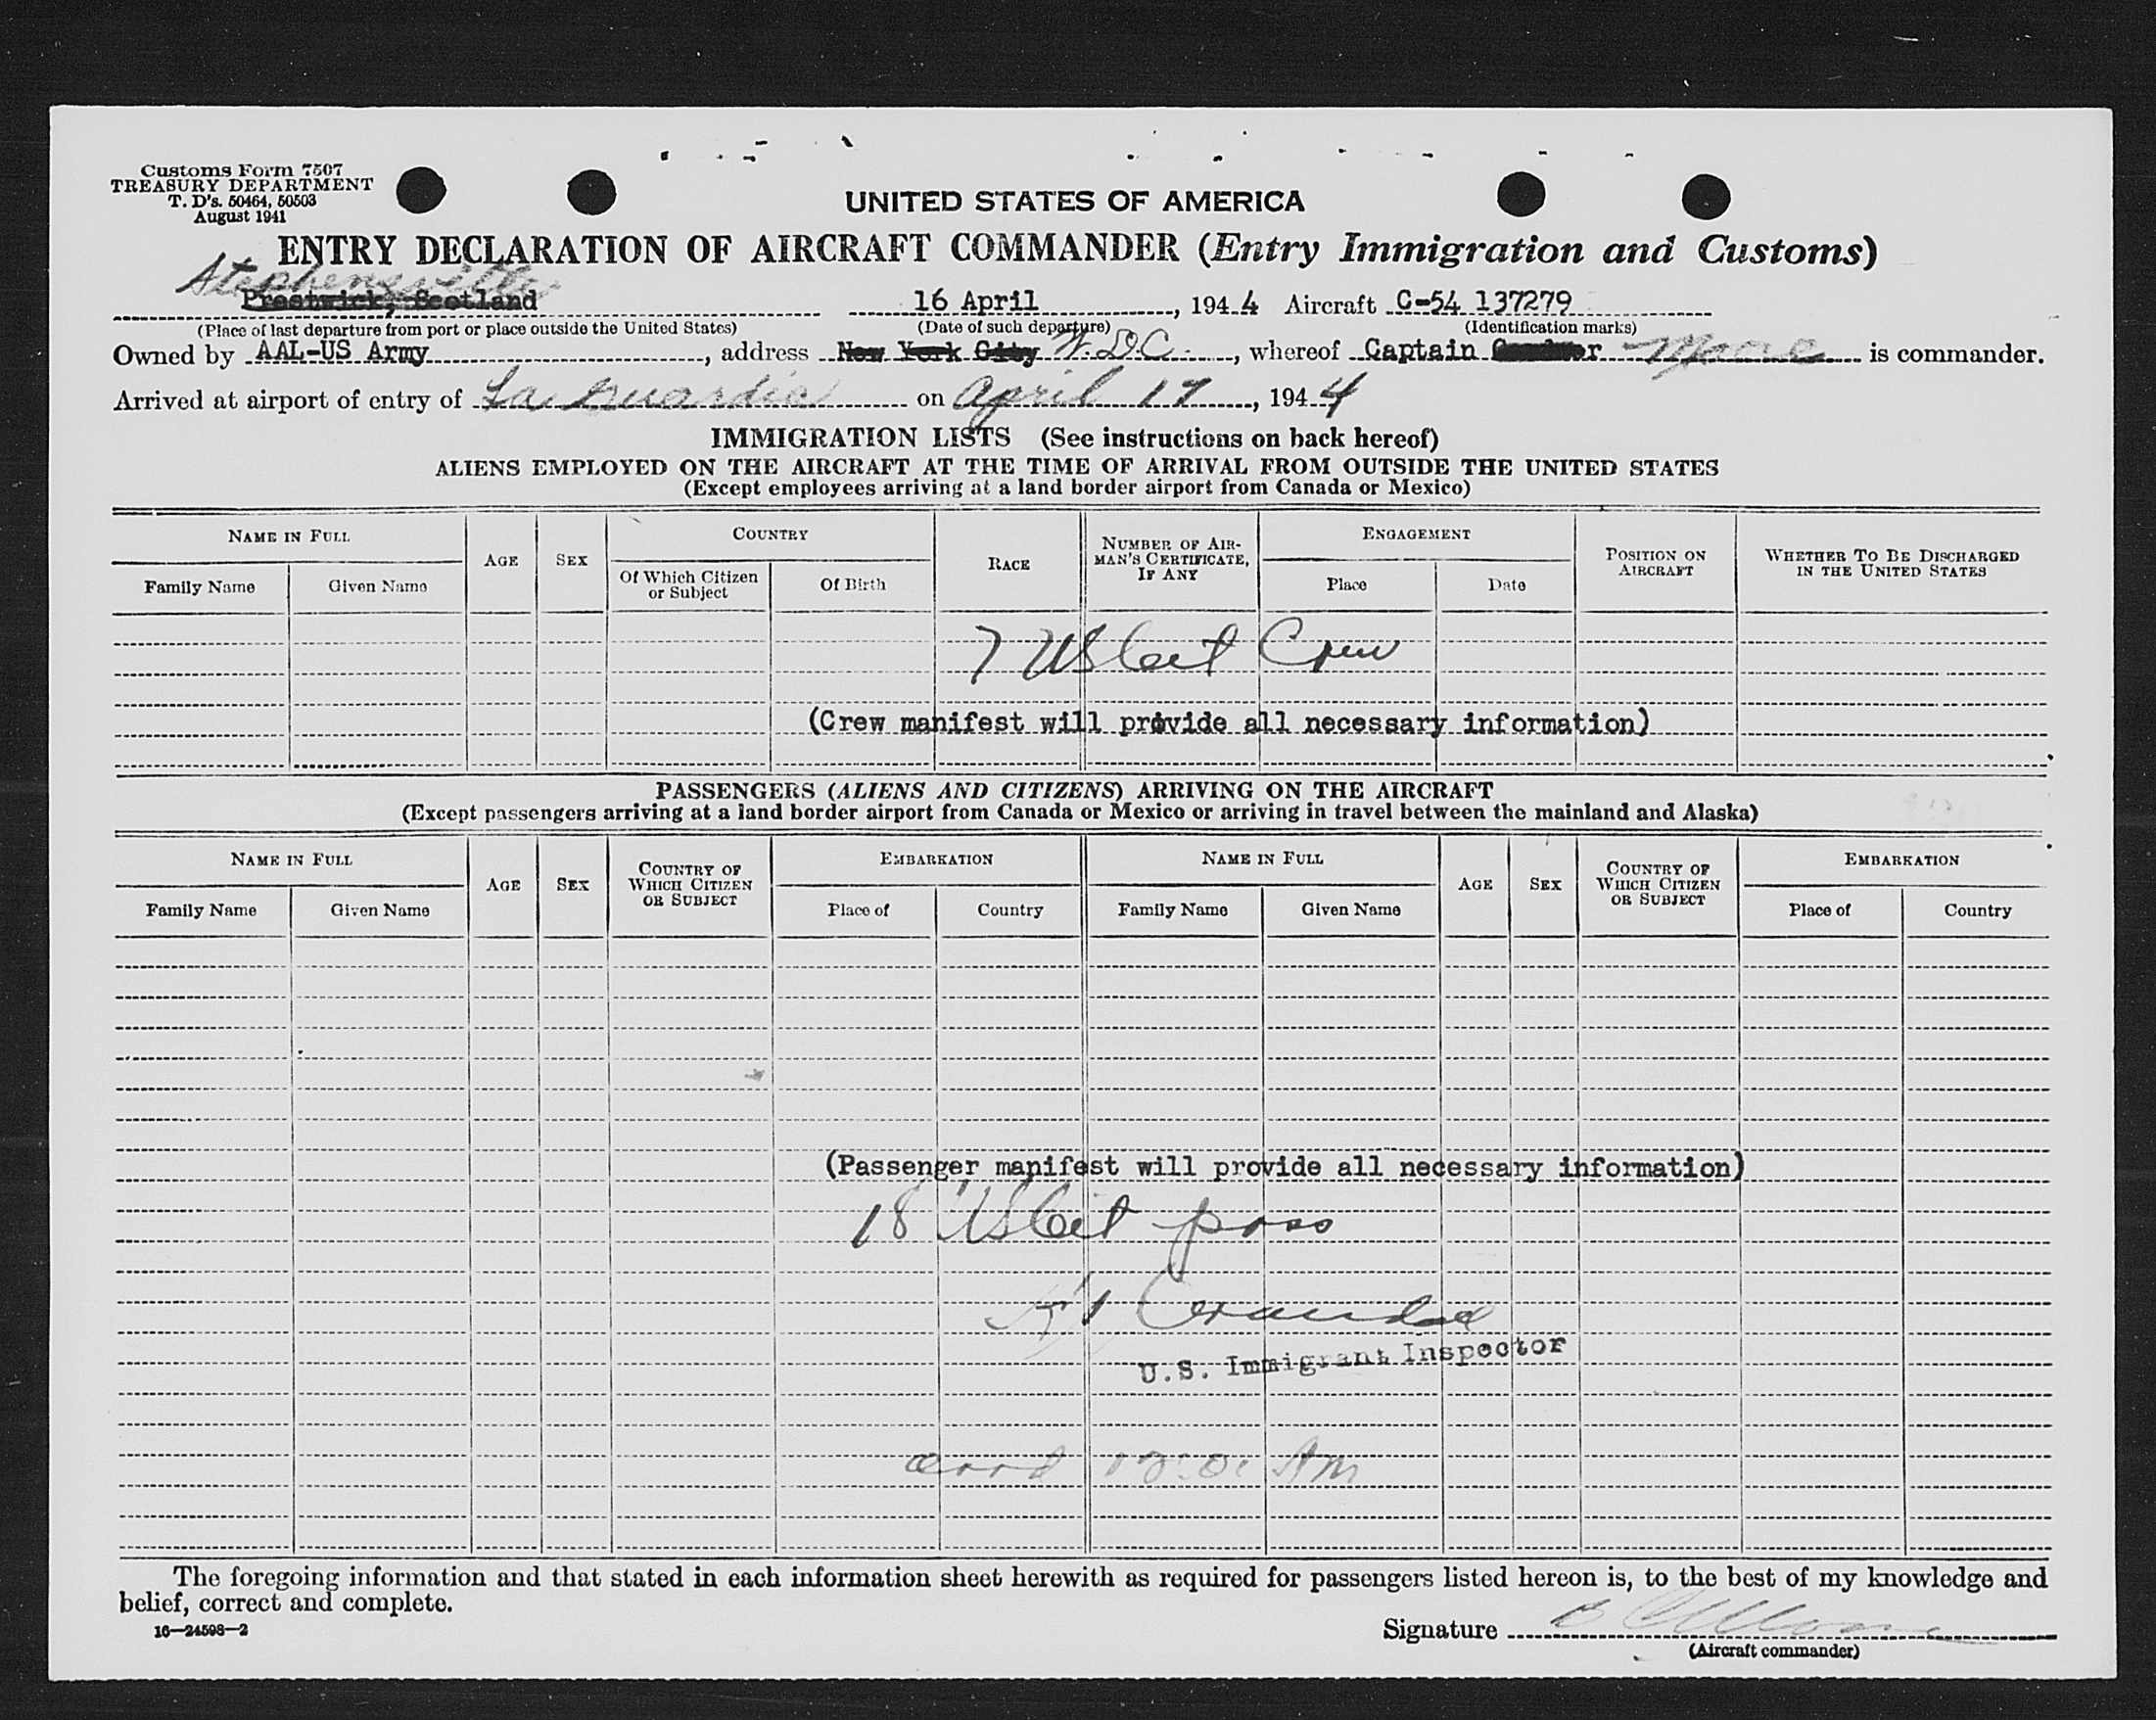 Customs Form 7507
TREASURY DEPARTMENT
T. D's. 50464, 50503
August 1941
UNITED STATES OF AMERICA
ENTRY DECLARATION OF AIRCRAFT COMMANDER (Entry Immigration and Customs)
Stephenville
Prestwick, Scotland 16 April, 1944 Aircraft C-54 137279
(Place of last departure from port or place outside the United States) (Date of such departure) (Identification marks)
Owned by AAL-US Army, address New York City W.D.C., whereof Captain Moore is commander.
Arrived at airport of entry of La Guardia on April 17, 1944
IMMIGRATION LISTS (See instructions on back hereof)
ALIENS EMPLOYED ON THE AIRCRAFT AT THE TIME OF ARRIVAL FROM OUTSIDE THE UNITED STATES
(Except employees arriving at a land border airport from Canada or Mexico)
NAME IN FULL AGE SEX COUNTRY RACE NUMBER OF AIRMAN'S CERTIFICATE, IF ANY ENGAGEMENT POSITION ON AIRCRAFT WHETHER TO BE DISCHARGED IN THE UNITED STATES
Family Name Given Name Of Which Citizen or Subject Of Birth Place Date
7 US Cit Crew
(Crew manifest will provide all necessary information)
PASSENGERS (ALIENS AND CITIZENS) ARRIVING ON THE AIRCRAFT
(Except passengers arriving at a land border airport from Canada or Mexico or arriving in travel between the mainland and Alaska)
NAME IN FULL AGE SEX COUNTRY OF WHICH CITIZEN OR SUBJECT EMBARKATION NAME IN FULL AGE SEX COUNTRY OF WHICH CITIZEN OR SUBJECT EMBARKATION
Family Name Given Name Place of Country Family Name Given Name Place of Country
(Passenger manifest will provide all necessary information)
18 US Cit pass
U.S. Immigrant Inspector
AM
The foregoing information and that stated in each information sheet herewith as required for passengers listed hereon is, to the best of my knowledge and
belief, correct and complete.
16—24598—2
Signature
(Aircraft commander)